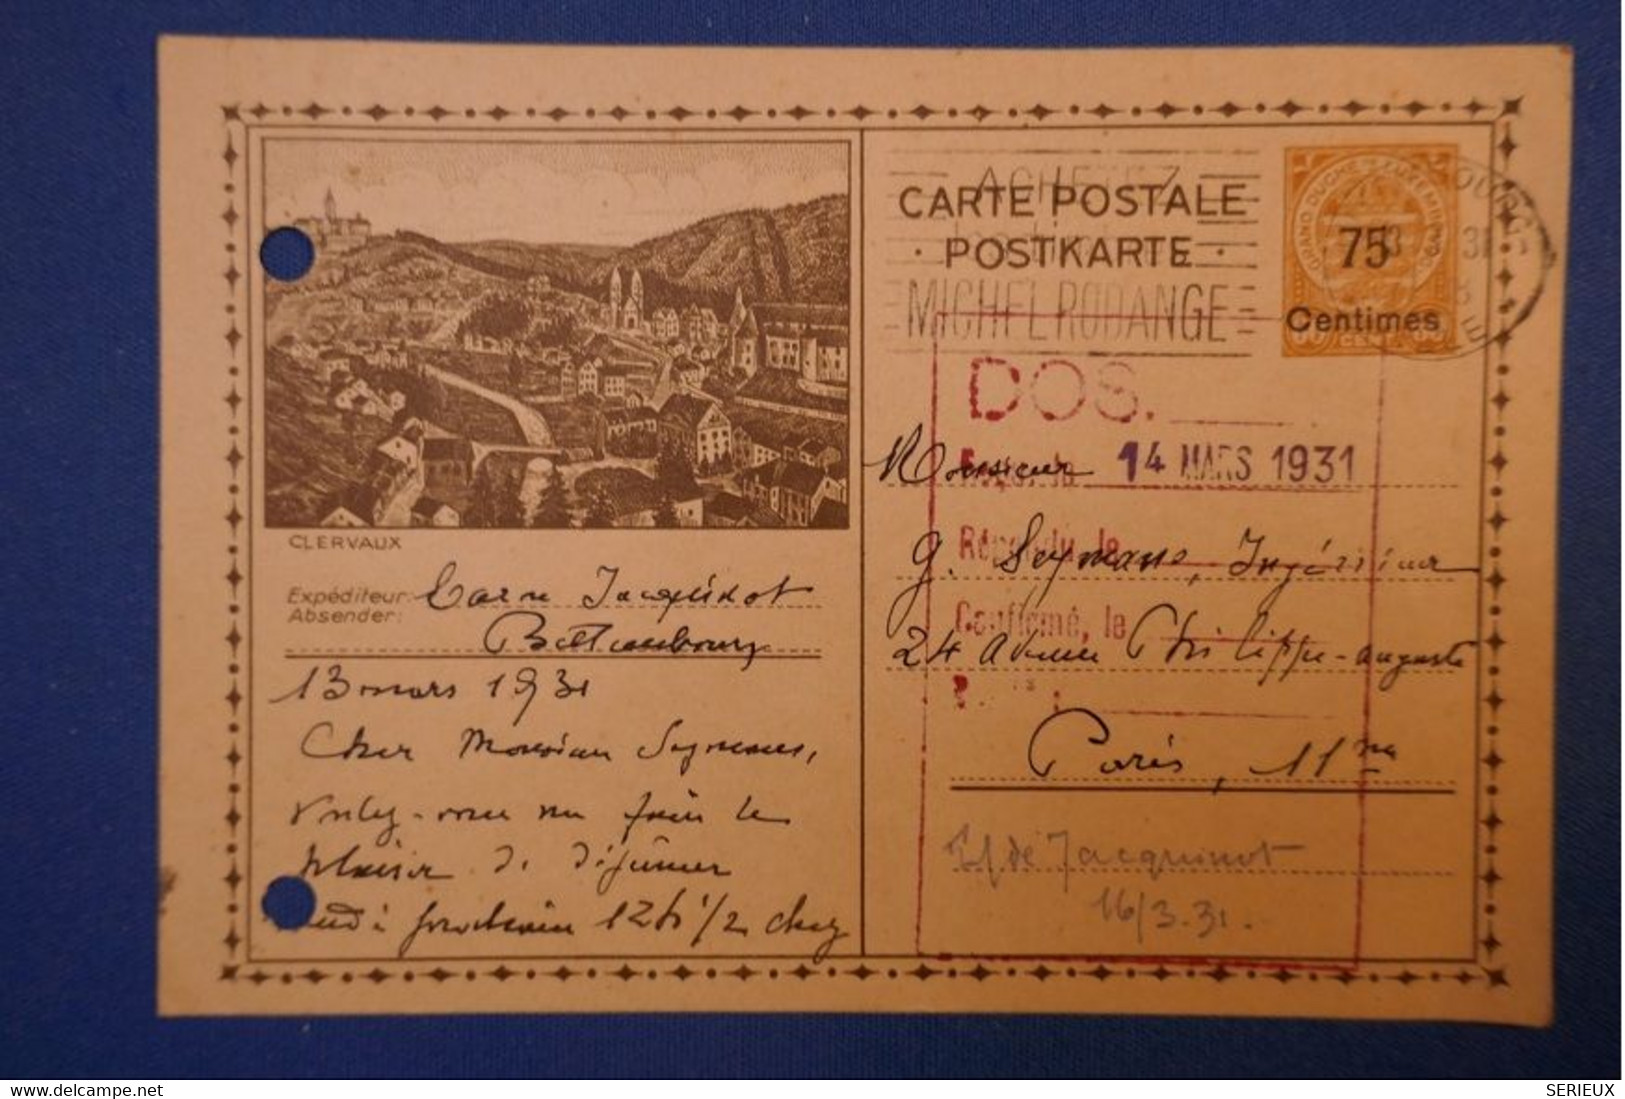 ACHETEZ
CARTE POSTALE
POSTKARTE
MICHEL RODANGE
GRAND DUCHÉ DE LUXEMBOURG
75
Centimes
CENT.
31
CLERVAUX
Expéditeur:
Absender:
Jacquinot
Bettembourg
13 mars 1931
Cher Monsieur Seymans,
Voulez-vous me faire le
plaisir de déjeuner
prochain 12h 1/2 chez
DOS.
Reçu, le 14 MARS 1931
Répondu, le
Confirmé, le
Monsieur
G. Seymans, Ingénieur
24 Avenue Philippe-Auguste
Paris, 11me
Tél de Jacquinot
16/3.31.
www.delcampe.net
SERIEUX